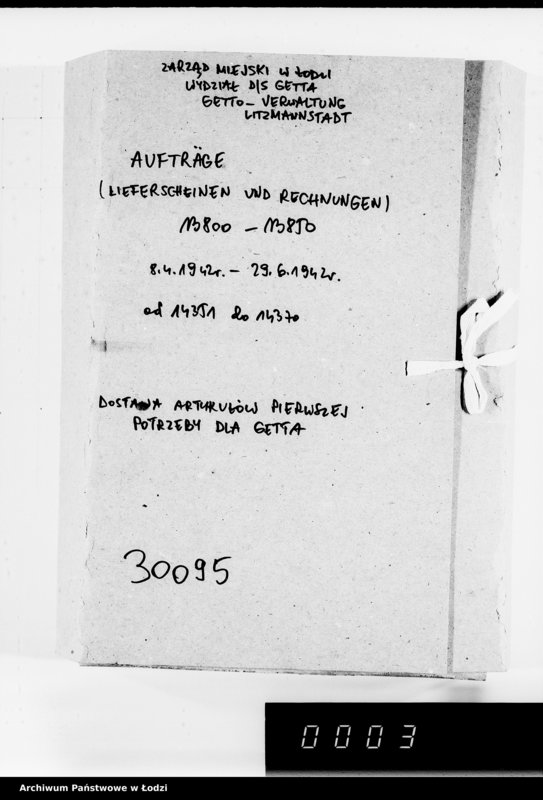 ZARZĄD MIEJSKI W ŁODZI
WYDZIAŁ D/S GETTA
GETTO – VERWALTUNG
LITZMANNSTADT
AUFTRÄGE
(LIEFERSCHEINEN UND RECHNUNGEN)
13800 – 13850
8.4.1942r. – 29.6.1942r.
od 14351 do 14370
DOSTAWA ARTYKUŁÓW PIERWSZEJ
POTRZEBY DLA GETTA
30095
0003
Archiwum Państwowe w Łodzi